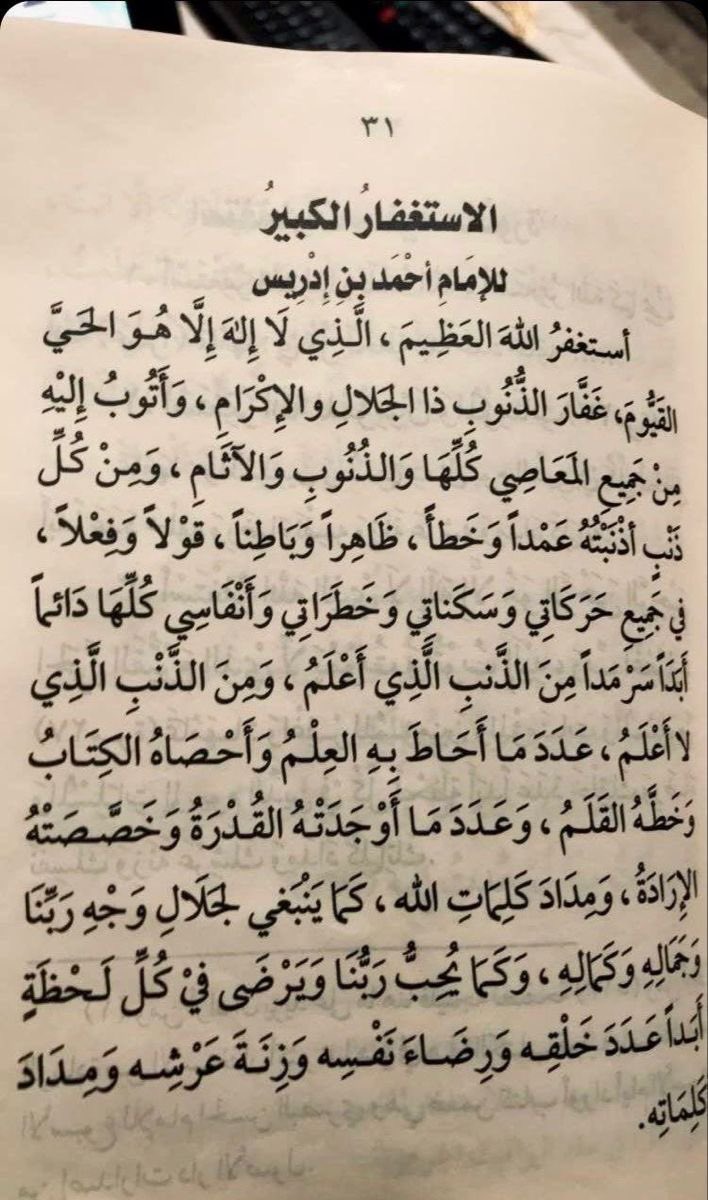 ٣١
الاستغفارُ الكبيرُ
للإمَامِ أحْمَد بنِ إدْرِيس
أستغفرُ اللهَ العَظِيمَ، الَّذِي لَا إِلهَ إِلَّا هُوَ الحَيَّ
القَيُّومَ، غَفَّارَ الذُّنُوبِ ذا الجَلالِ والإِكْرَامِ، وَأَتُوبُ إِلَيْهِ
مِنْ جَمِيعِ المَعَاصِي كُلِّهَا وَالذُنُوبِ وَالآثَامِ، وَمِنْ كُلِّ
ذَنْبٍ أذْنَبْتُهُ عَمْداً وَخَطأً، ظَاهِراً وَبَاطِناً، قوْلاً وَفِعْلاً،
في جَمِيعِ حَرَكَاتِي وَسَكَناتِي وَخَطَرَاتِي وَأَنْفَاسِي كُلِّهَا دَائماً
أبَدَاً سَرْمَداً مِنَ الذَّنبِ الَّذِي أَعْلَمُ، وَمِنَ الذَّنْبِ الَّذِي
لا أَعْلَمُ، عَدَدَ مَا أَحَاطَ بِهِ العِلْمُ وَأَحْصَاهُ الكِتَابُ
وَخَطَّهُ القَلَمُ، وَعَدَدَ مَا أَوْجَدَتْهُ القُدْرَةُ وَخَصَّصَتْهُ
الإِرَادَةُ، وَمِدَادَ كَلِمَاتِ الله، كَمَا يَنْبَغي لجَلَالِ وَجْهِ رَبِّنَا
وَجَمَالِهِ وَكَمَالِهِ، وَكَمَا يُحِبُّ رَبُّنَا وَيَرْضَى فيْ كُلِّ لَحْظَةٍ
أَبَداً عَدَدَ خَلْقِه وَرِضَاءَ نَفْسِه وَزِنَةَ عَرْشِه وَمِدَادَ
كَلِمَاتِه.